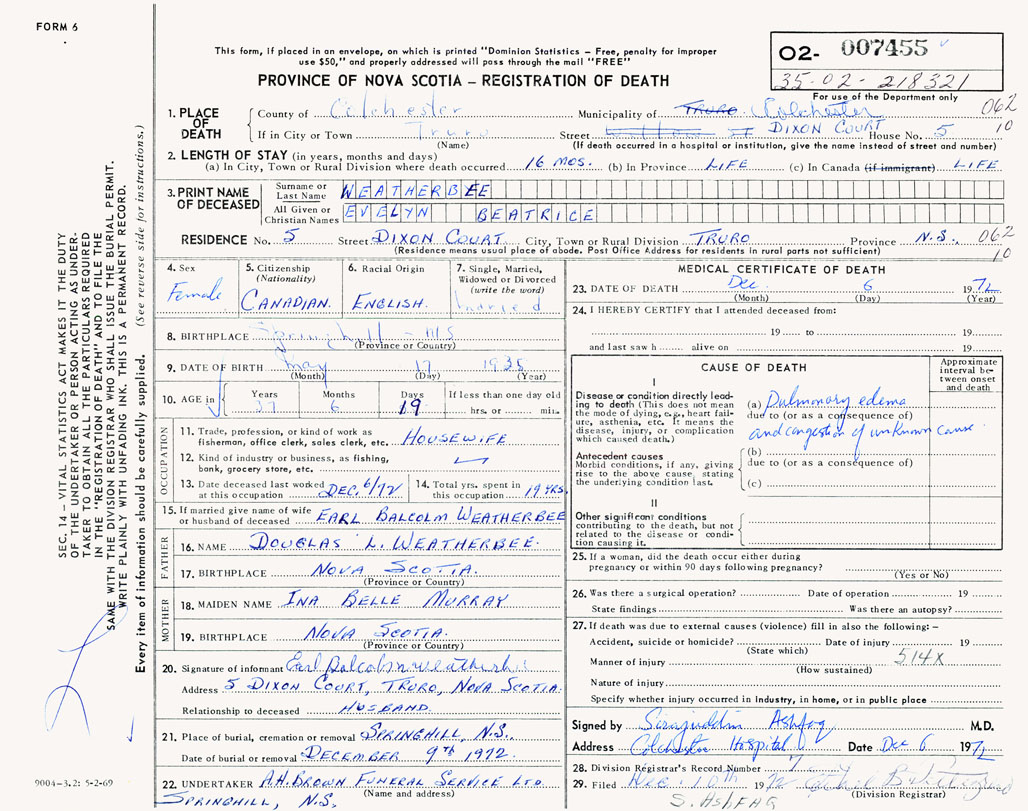 FORM 6
This form, if placed in an envelope, on which is printed "Dominion Statistics – Free, penalty for improper
use $50," and properly addressed will pass through the mail "FREE"
PROVINCE OF NOVA SCOTIA – REGISTRATION OF DEATH
02- 007455
35-02-218321
For use of the Department only
SEC. 14 – VITAL STATISTICS ACT MAKES IT THE DUTY
OF THE UNDERTAKER OR PERSON ACTING AS UNDER-
TAKER TO OBTAIN ALL THE PARTICULARS REQUIRED
IN THE "REGISTRATION OF DEATH" AND FILE THE
SAME WITH THE DIVISION REGISTRAR WHO SHALL ISSUE THE BURIAL PERMIT.
WRITE PLAINLY WITH UNFADING INK. THIS IS A PERMANENT RECORD.
Every item of information should be carefully supplied. (See reverse side for instructions.)
1. PLACE OF DEATH
County of Colchester Municipality of Truro Colchester 062
If in City or Town Truro Street DIXON COURT House No. 5 10
(Name) (If death occurred in a hospital or institution, give the name instead of street and number)
2. LENGTH OF STAY (in years, months and days)
(a) In City, Town or Rural Division where death occurred 16 MOS. (b) In Province LIFE (c) In Canada (if immigrant) LIFE
3. PRINT NAME OF DECEASED
Surname or Last Name WEATHERBEE
All Given or Christian Names EVELYN BEATRICE
RESIDENCE No. 5 Street DIXON COURT City, Town or Rural Division TRURO Province N.S., 062
(Residence means usual place of abode. Post Office Address for residents in rural parts not sufficient) 10
4. Sex Female
5. Citizenship (Nationality) CANADIAN.
6. Racial Origin ENGLISH.
7. Single, Married, Widowed or Divorced (write the word) Married
8. BIRTHPLACE Springhill – N.S
(Province or Country)
9. DATE OF BIRTH May 17 1935
(Month) (Day) (Year)
10. AGE in Years Months Days If less than one day old
37 6 19 hrs. or min.
OCCUPATION
11. Trade, profession, or kind of work as
fisherman, office clerk, sales clerk, etc. HOUSEWIFE
12. Kind of industry or business, as fishing,
bank, grocery store, etc.
13. Date deceased last worked
at this occupation DEC. 6/72
14. Total yrs. spent in
this occupation 19 YRS.
15. If married give name of wife
or husband of deceased EARL BALCOLM WEATHERBEE
FATHER
16. NAME DOUGLAS L. WEATHERBEE.
17. BIRTHPLACE NOVA SCOTIA.
(Province or Country)
MOTHER
18. MAIDEN NAME INA BELLE MURRAY
19. BIRTHPLACE NOVA SCOTIA.
(Province or Country)
20. Signature of informant Earl Balcolm Weatherbee
Address 5 DIXON COURT, TRURO, NOVA SCOTIA.
Relationship to deceased HUSBAND.
21. Place of burial, cremation or removal SPRINGHILL, N.S.
Date of burial or removal DECEMBER 9TH 1972
22. UNDERTAKER A.H. BROWN FUNERAL SERVICE LTD.
(Name and address)
SPRINGHILL, N.S.
9004–3.2: 5-2-69
MEDICAL CERTIFICATE OF DEATH
23. DATE OF DEATH Dec. 6 1972
(Month) (Day) (Year)
24. I HEREBY CERTIFY that I attended deceased from:
19 to 19
and last saw h alive on 19
CAUSE OF DEATH
Approximate interval be-
tween onset
and death
I
Disease or condition directly lead-
ing to death (This does not mean
the mode of dying, e.g., heart fail-
ure, asthenia, etc. It means the
disease, injury, or complication
which caused death.)
(a) Pulmonary edema
due to (or as a consequence of)
and congestion of unknown cause.
Antecedent causes
Morbid conditions, if any, giving
rise to the above cause, stating
the underlying condition last.
(b)
due to (or as a consequence of)
(c)
II
Other significant conditions
contributing to the death, but not
related to the disease or condi-
tion causing it.
25. If a woman, did the death occur either during
pregnancy or within 90 days following pregnancy?
(Yes or No)
26. Was there a surgical operation? Date of operation 19
State findings Was there an autopsy?
27. If death was due to external causes (violence) fill in also the following: –
Accident, suicide or homicide? Date of injury 19
(State which)
Manner of injury 514X
(How sustained)
Nature of injury
Specify whether injury occurred in industry, in home, or in public place
Signed by Sirajuddin Ashfaq M.D.
Address Colchester Hospital Date Dec 6 1972
28. Division Registrar's Record Number
29. Filed Dec. 10th 1972
(Division Registrar)
S. ASHFAQ